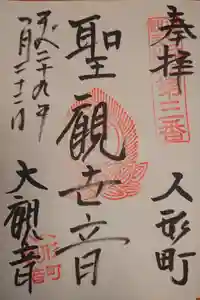 奉拝
第三番
人形町
聖観世音
平成二十九年
一月二十二日
大観音